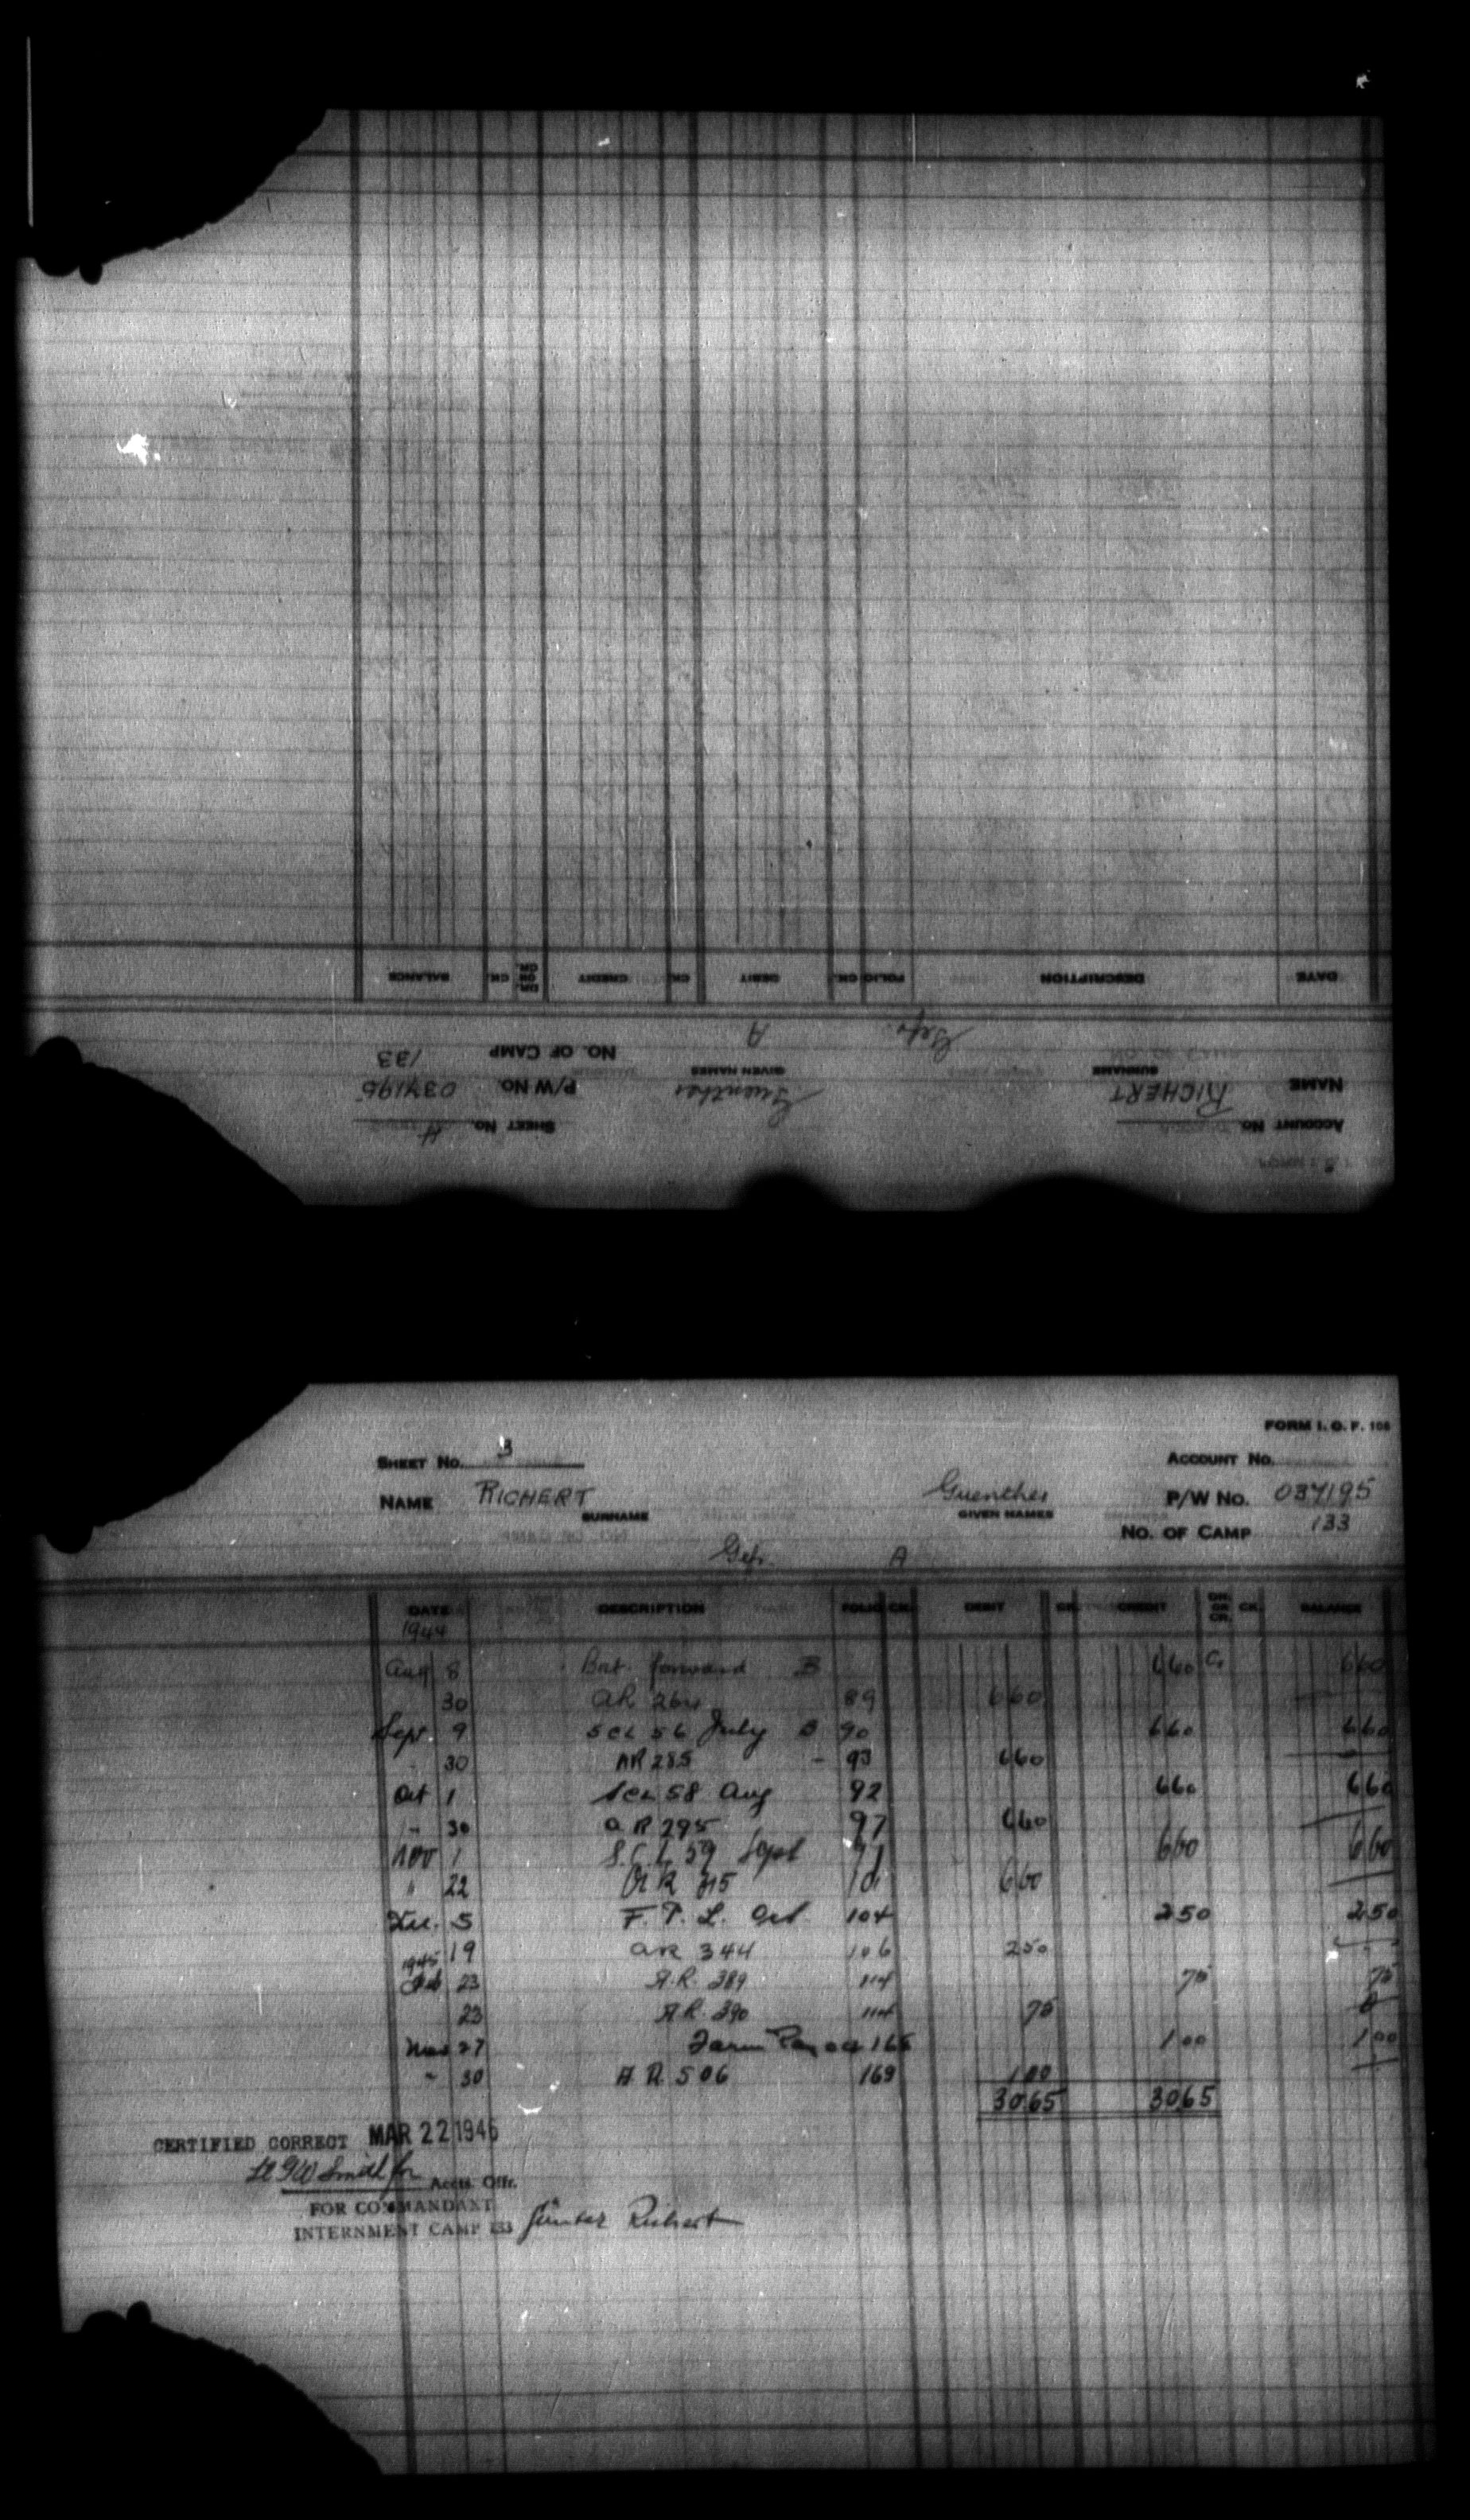 BALANCE CK. DR. OR CR. CREDIT CK. DEBIT CK. FOLIO DESCRIPTION DATE
Gefr. A
NO. OF CAMP 133
NAME RICHERT SURNAME Guenther GIVEN NAMES P/W NO. 037195
ACCOUNT NO. SHEET NO. 4
FORM I. O. F. 108
SHEET NO. 3 ACCOUNT NO.
NAME RICHERT Guenther P/W NO. 037195
SURNAME GIVEN NAMES
NO. OF CAMP 133
Gefr. A
DATE DESCRIPTION FOLIO CK. DEBIT CK. CREDIT DR. OR CR. CK. BALANCE
1944
Aug 8 Bal. forward B 660 Cr 660
30 AR 264 89 660
Sept. 9 SCL 56 July B 90 660 660
30 AR 285 - 93 660
Oct 1 SCL 58 Aug 92 660 660
" 30 AR 295 97 660
Nov 1 S.C.L. 59 Sept 660 660
" 22 AR 315 101 660
Dec. 5 F. P. L. Oct 104 250 250
19 AR 344 106 250
1945
Feb 23 A.R. 389 114 75 75
23 A.R. 390 114 75 0
Mar 27 Farm Pay 166 100 100
" 30 A.R. 506 169 100
3065 3065
CERTIFIED CORRECT MAR 22 1946
Lt GW Smith for Accts. Offr.
FOR COMMANDANT
INTERNMENT CAMP 133 Günter Richert